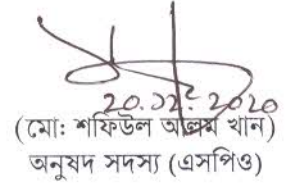 20.১২.2020
(মো: শফিউল আলম খান)
অনুষদ সদস্য (এসপিও)